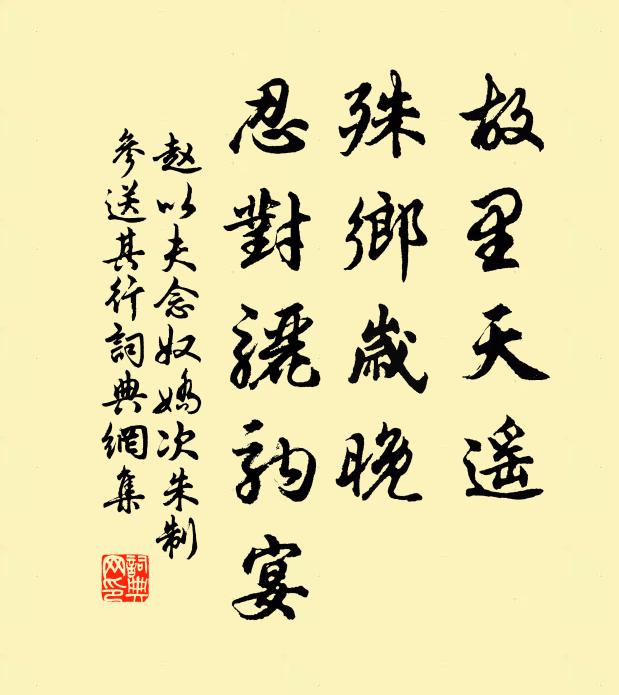 故里天遥
殊鄉歲晚
忍對驪駒宴
赵以夫念奴嬌次朱制
參送其行詞典網集
詞典
网印